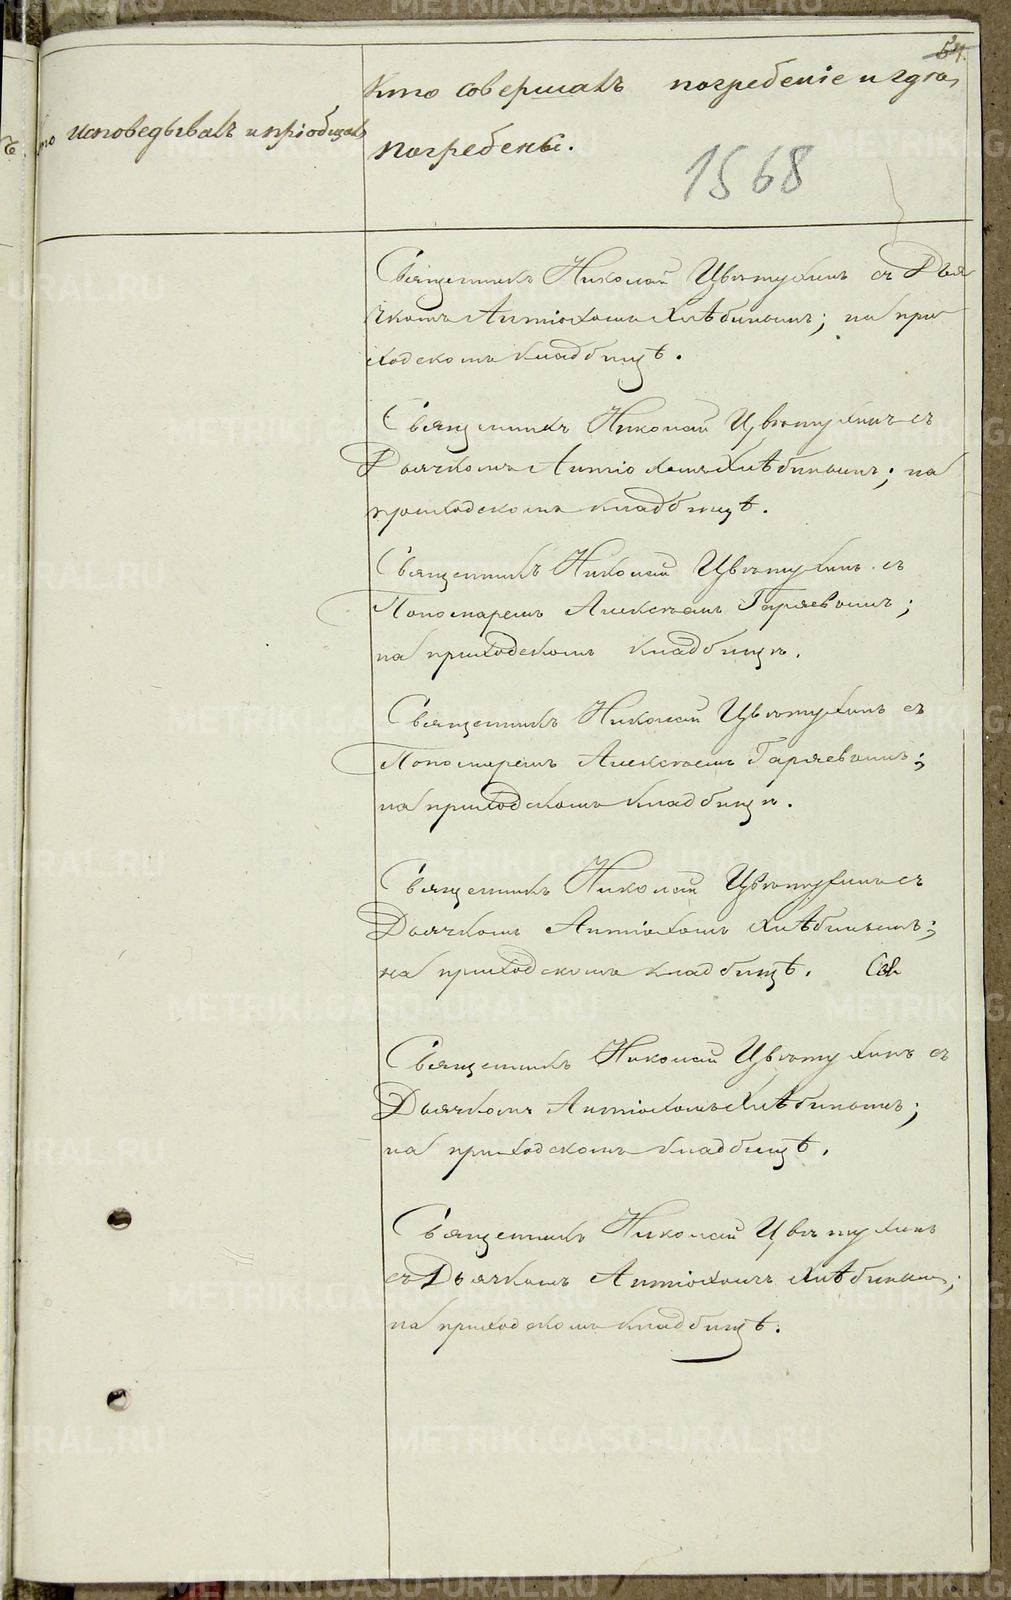 54.
Кто исповедывалъ и пріобщалъ
Кто совершалъ погребеніе и гдѣ
погребены.
1568
Священникъ Николай Цвѣтухинъ съ Дья
чкомъ Антіохомъ Хлѣбинымъ; на при
ходскомъ кладбищѣ.
Священникъ Николай Цвѣтухинъ съ
Дьячкомъ Антіохомъ Хлѣбинымъ; на
приходскомъ кладбищѣ.
Священникъ Николай Цвѣтухинъ съ
Пономаремъ Алексѣемъ Гаряевымъ;
на приходскомъ кладбищѣ.
Священникъ Николай Цвѣтухинъ съ
Пономаремъ Алексѣемъ Гаряевымъ;
на приходскомъ кладбищѣ.
Священникъ Николай Цвѣтухинъ съ
Дьячкомъ Антіохомъ Хлѣбинымъ;
на приходскомъ кладбищѣ.
Священникъ Николай Цвѣтухинъ съ
Дьячкомъ Антіохомъ Хлѣбинымъ;
на приходскомъ кладбищѣ.
Священникъ Николай Цвѣтухинъ
съ Дьячкомъ Антіохомъ Хлѣбинымъ;
на приходскомъ кладбищѣ.